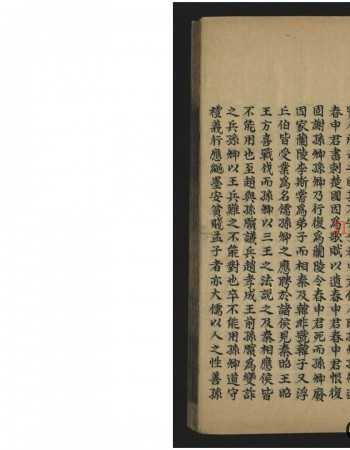 春申君書刺楚國因爲歌賦以遺春申君春申君恨復
固謝孫卿孫卿乃行復爲蘭陵令春申君死而孫卿廢
因家蘭陵李斯嘗爲弟子而相秦及韓非號韓子又浮
丘伯皆受業爲名儒孫卿之應聘於諸侯見秦昭王昭
王方喜戰伐而孫卿以三王之法說之及秦相應侯皆
不能用也至趙與孫臏議兵趙孝成王前孫臏爲變詐
之兵孫卿以王兵難之不能對也卒不能用孫卿道守
禮義行應繩墨安貧賤孟子者亦大儒以人之性善孫